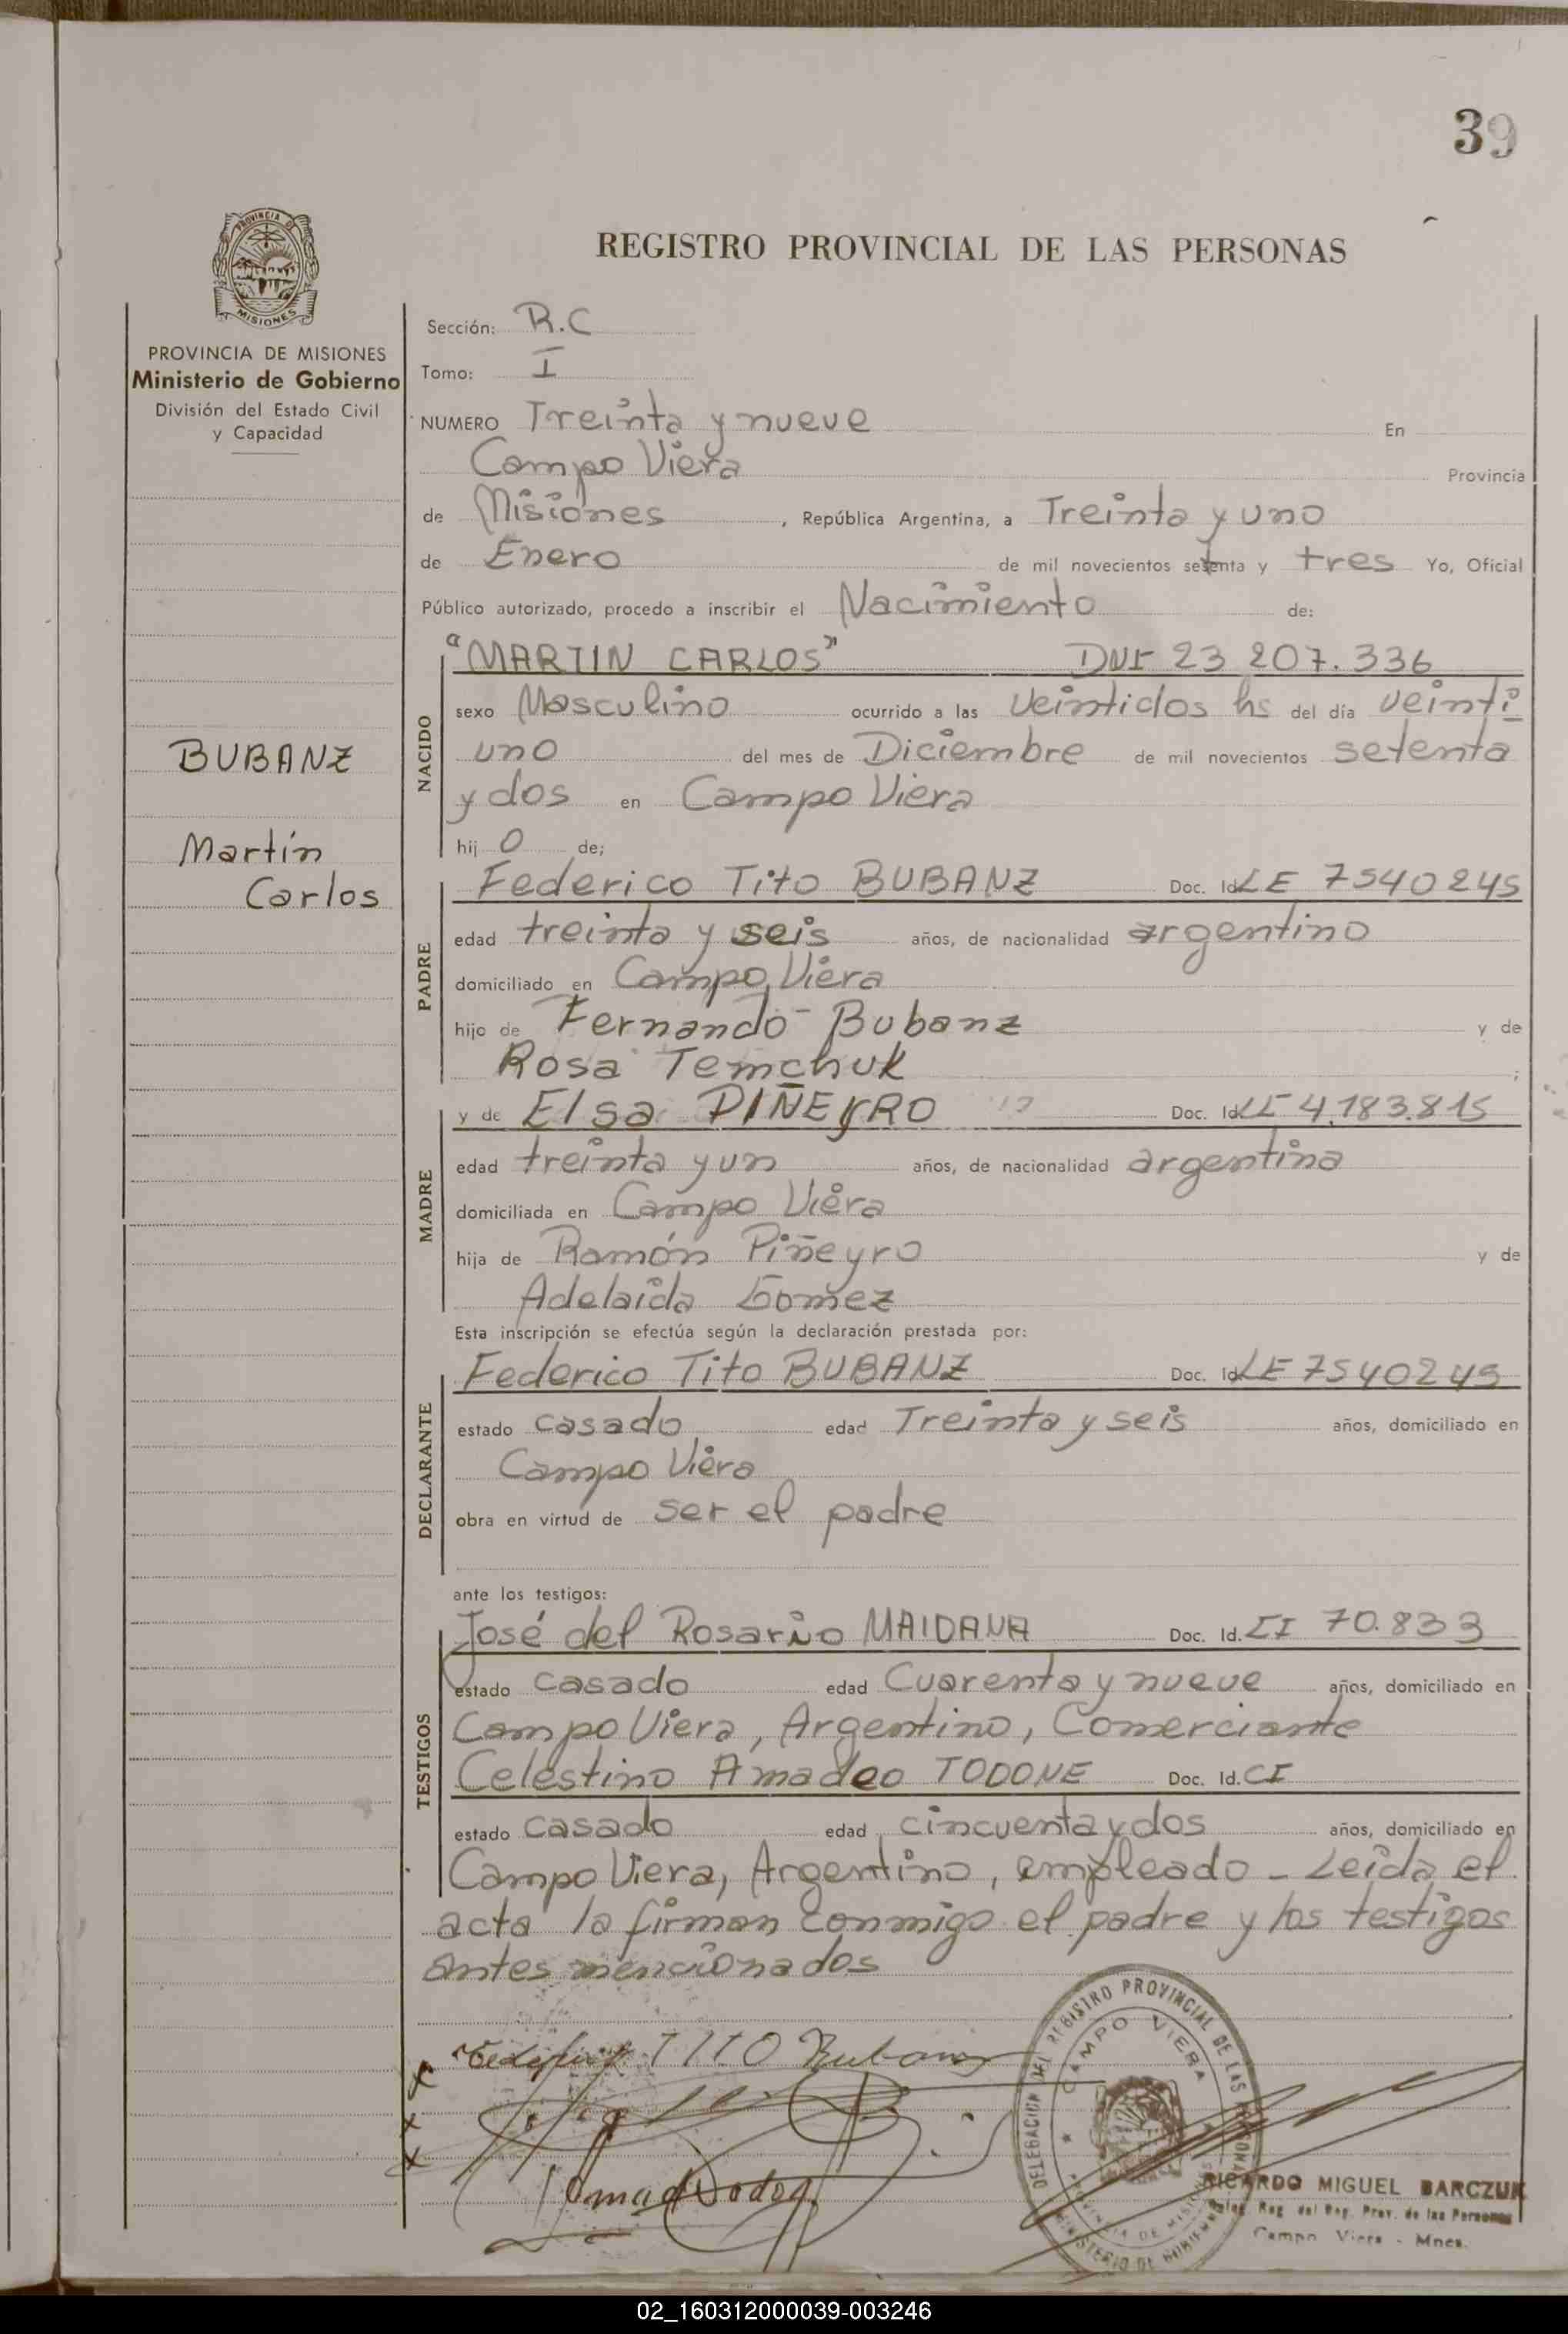 39
PROVINCIA DE
MISIONES
PROVINCIA DE MISIONES
Ministerio de Gobierno
División del Estado Civil
y Capacidad
BUBANZ
Martín
Carlos
REGISTRO PROVINCIAL DE LAS PERSONAS
Sección: R.C
Tomo: I
NUMERO Treinta y nueve En
Campo Viera Provincia
de Misiones, República Argentina, a Treinta y uno
de Enero de mil novecientos setenta y tres Yo, Oficial
Público autorizado, procedo a inscribir el Nacimiento de:
NACIDO
"MARTIN CARLOS" DNI 23 207.336
sexo Masculino ocurrido a las veintidos hs del día veinti
uno del mes de Diciembre de mil novecientos setenta
y dos en Campo Viera
hij o de;
PADRE
Federico Tito BUBANZ Doc. Id. LE 7540245
edad treinta y seis años, de nacionalidad argentino
domiciliado en Campo Viera
hijo de Fernando Bubanz y de
Rosa Temchuk ;
MADRE
y de Elsa PIÑEYRO Doc. Id. LE 4.183.815
edad treinta y un años, de nacionalidad argentina
domiciliada en Campo Viera
hija de Ramón Piñeyro y de
Adelaida Gomez
Esta inscripción se efectúa según la declaración prestada por:
DECLARANTE
Federico Tito BUBANZ Doc. Id. LE 7540245
estado casado edad Treinta y seis años, domiciliado en
Campo Viera
obra en virtud de ser el padre
ante los testigos:
TESTIGOS
José del Rosario MAIDANA Doc. Id. CI 70.833
estado casado edad Cuarenta y nueve años, domiciliado en
Campo Viera, Argentino, Comerciante
Celestino Amadeo TODONE Doc. Id. CI
estado casado edad cincuenta y dos años, domiciliado en
Campo Viera, Argentino, empleado - Leída el
acta la firman conmigo el padre y los testigos
antes mencionados
TITO Bubanz
DELEGACION DEL REGISTRO PROVINCIAL DE LAS PERSONAS
CAMPO VIERA
PROVINCIA DE MISIONES
MINISTERIO DE GOBIERNO
RICARDO MIGUEL BARCZUK
Reg. del Reg. Prov. de las Personas
Campo Viera - Mnes.
02_160312000039-003246